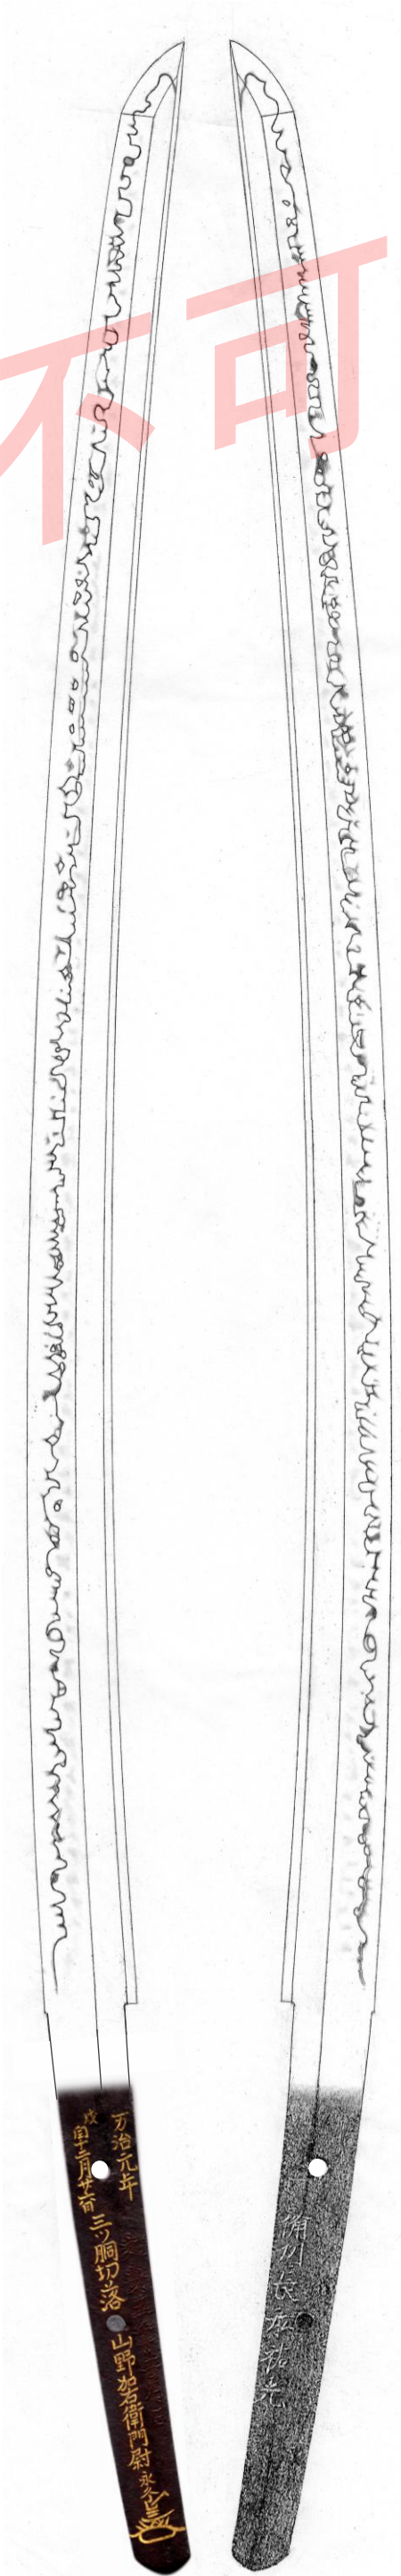 不可
万治元年
戌閏十二月廿六日
三ツ胴切落
山野加右衛門尉永久
備州長船祐光